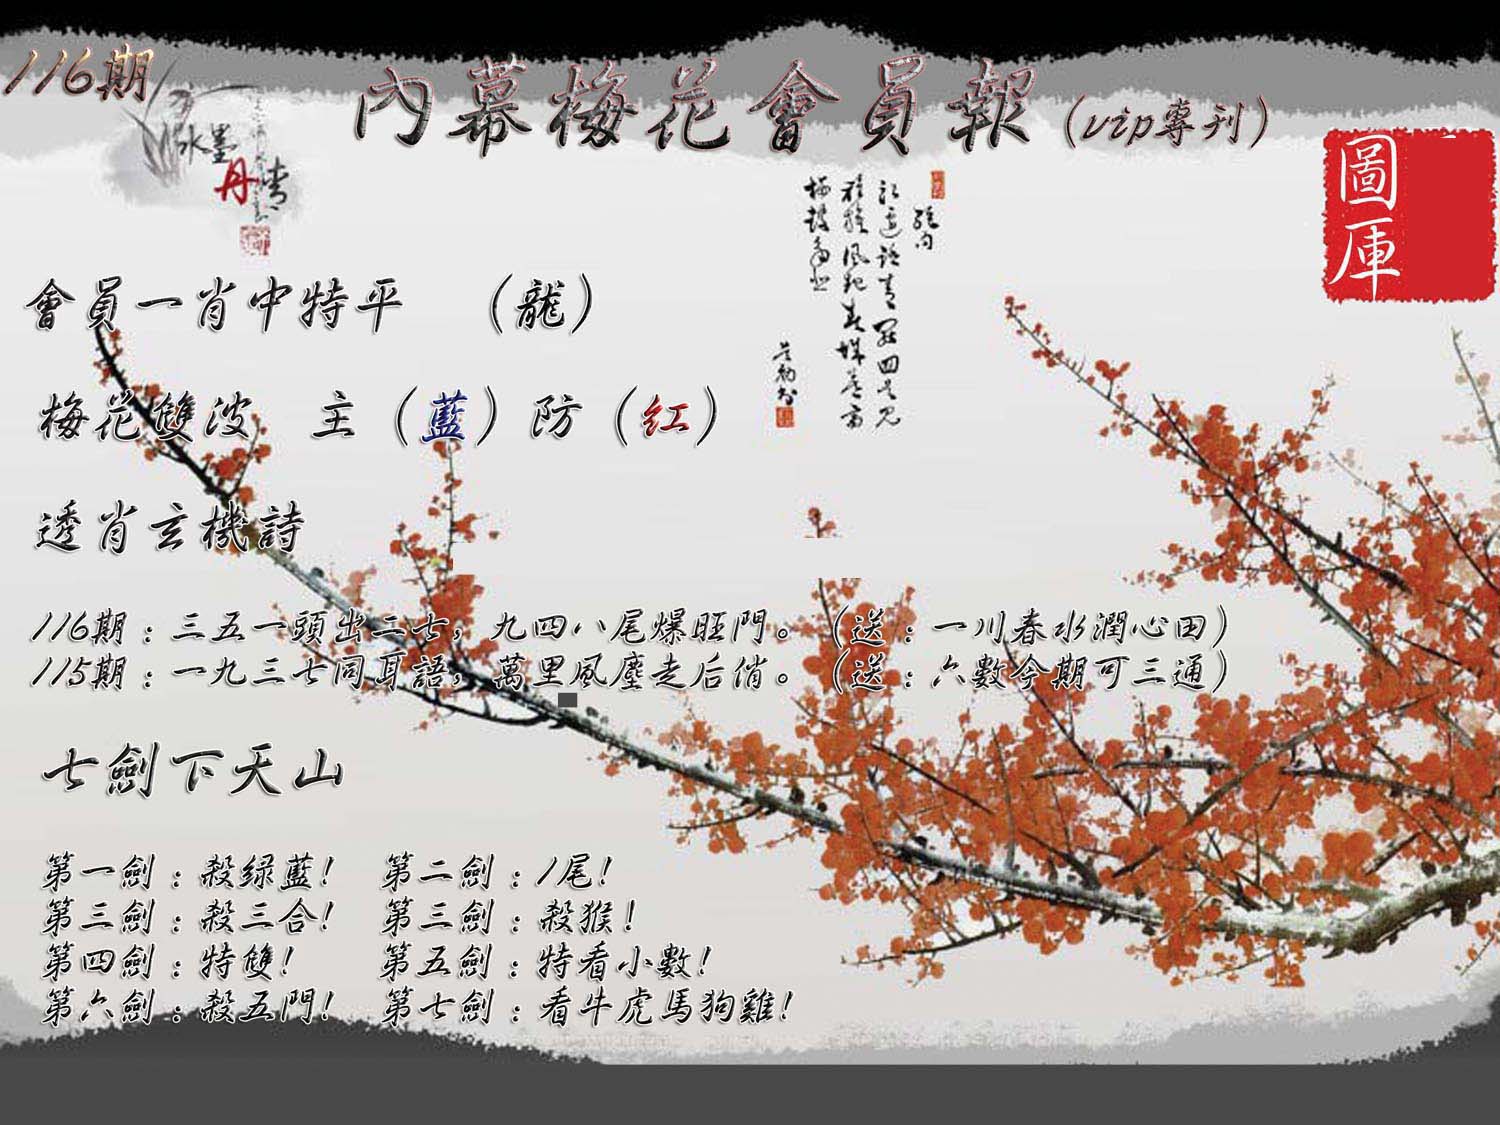 116期
內幕梅花會員報(vip專刊)
水墨
丹青
圖庫
會員一肖中特平 (龍)
梅花雙波 主(藍)防(红)
透肖玄機詩
116期:三五一頭出二七,九四八尾爆旺門。(送:一川春水潤心田)
115期:一九三七同耳語,萬里風塵走后俏。(送:六數今期可三通)
七劍下天山
第一劍:殺绿藍! 第二劍:1尾!
第三劍:殺三合! 第三劍:殺猴!
第四劍:特雙! 第五劍:特看小數!
第六劍:殺五門! 第七劍:看牛虎馬狗雞!